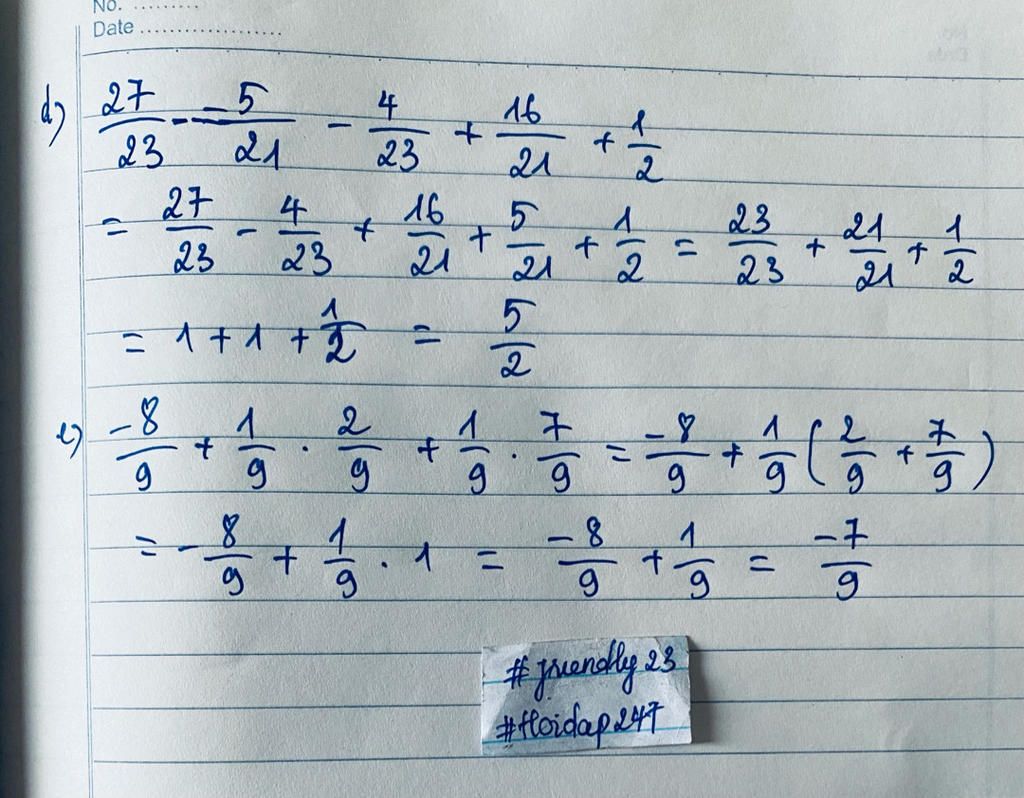 No. .........
Date ...................
d) 27/23 - -5/21 - 4/23 + 16/21 + 1/2
= 27/23 - 4/23 + 16/21 + 5/21 + 1/2 = 23/23 + 21/21 + 1/2
= 1 + 1 + 1/2 = 5/2
e) -8/9 + 1/9 . 2/9 + 1/9 . 7/9 = -8/9 + 1/9 (2/9 + 7/9)
= -8/9 + 1/9 . 1 = -8/9 + 1/9 = -7/9
#friendly23
#Hoidap247